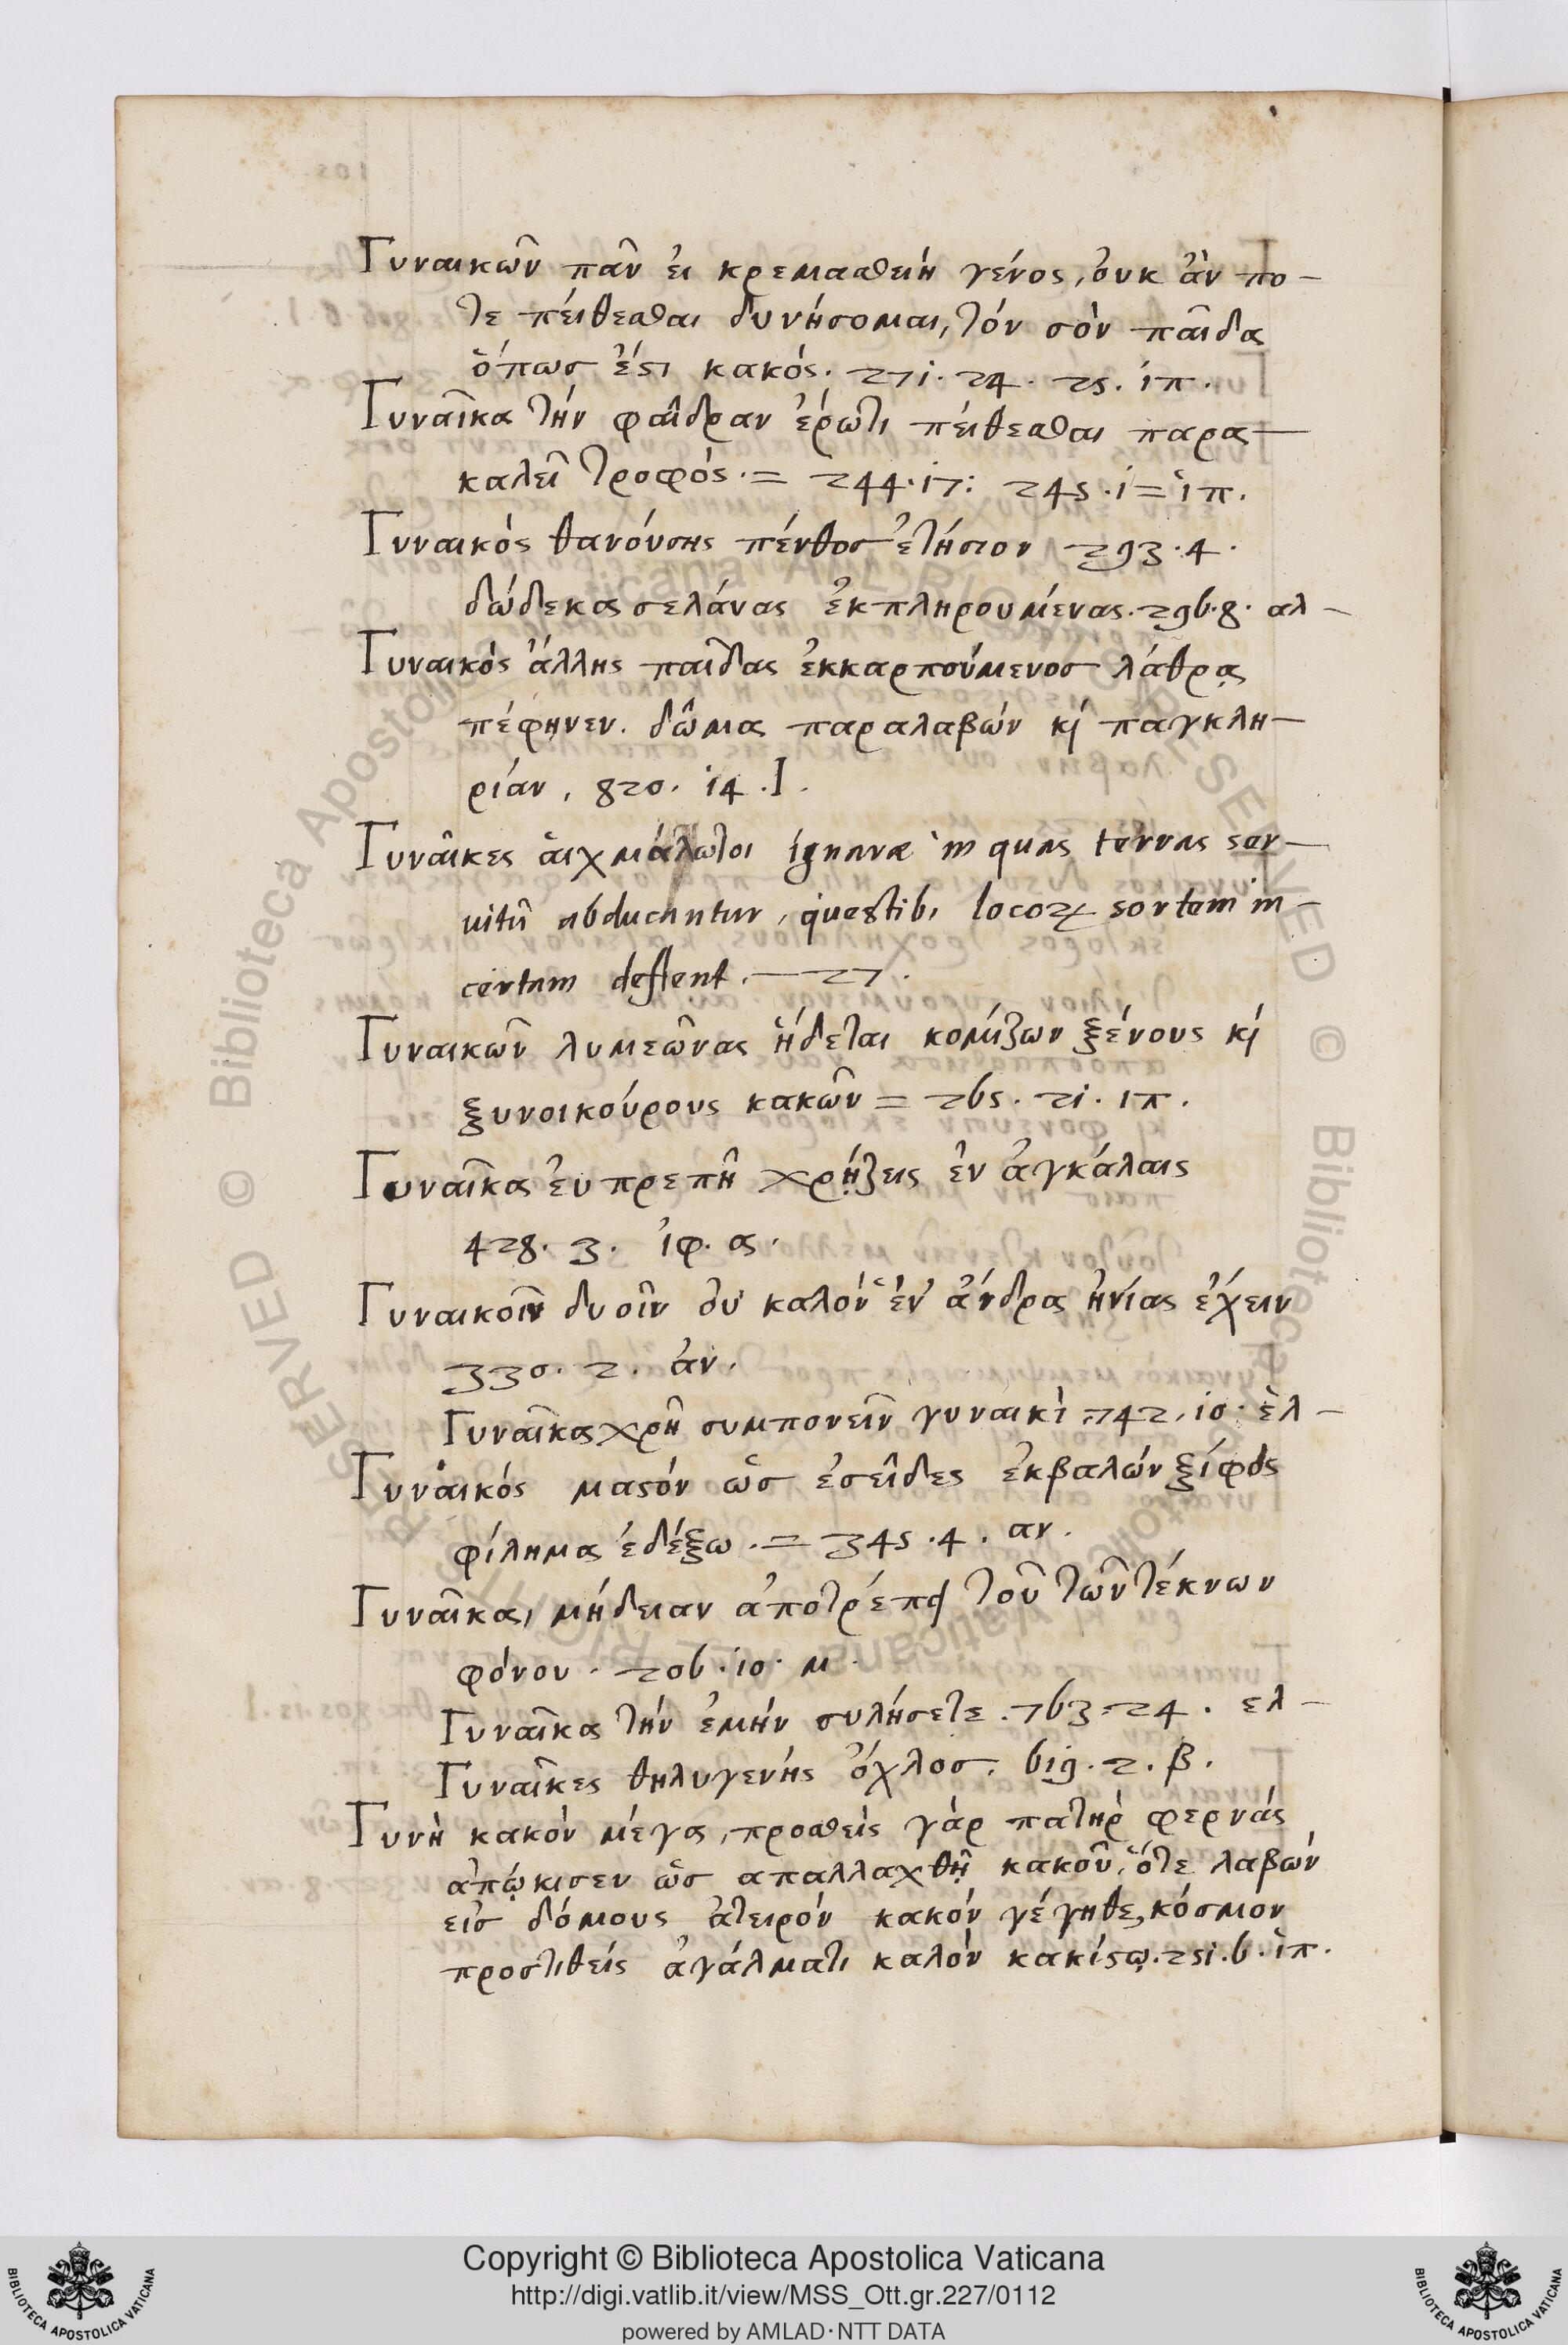 Γυναικῶν πᾶν ἐι κρεμασθείη γένος, ὀυκ ἄν πο-
τε πέιθεσθαι δυνήσομαι, τόν σόν παῖδα
ὅπως ἐστι κακός. 271. 24. 25. ἱπ.
Γυναῖκα τήν φαῖδραν ἐρωτι πέιθεσθαι παρα-
καλεῖ τροφὸς. = 244. 17: 245. 1 = ἱπ.
Γυναικὸς θανόυσης πένθος ἐτήσιον 293. 4.
δώδεκα σελάνας ἐκπληρουμένας. 296. 8. αλ-
Γυναικὸς ἄλλης παῖδας ἐκκαρπούμενος λάθρᾳ
πέφηνεν. δῶμα παραλαβών κὶ παγκλη-
ρίαν, 820. 14. Ι.
Γυναῖκες ἀιχμάλωτοι ignarae in quas terras ser-
uitū abducantur, questibꝰ locoꝝ sortem in-
certam deflent. — 27.
Γυναικῶν λυμεῶνας ἥδεται κομίζων ξένους κὶ
ξυνοικούρους κακῶν = 265. 21. ιπ.
Γυναῖκα ἐυπρεπῆ χρῄζεις ἐν ἀγκάλαις
428. 3. ἰφ. α.
Γυναικοῖν δυοῖν ὀυ καλόν ἕν' ἄνδρα ἡνίας ἔχειν
330. 2. ἀν.
Γυναῖκα χρῆ συμπονεῖν γυναικὶ. 742. 10. ἑλ-
Γυναικός μαστόν ὡς ἐσεῖδες ἐκβαλών ξίφος
φίλημα ἐδέξω. = 345. 4. αν.
Γυναῖκα, μήδειαν ἀποτρέπει τοῦ τῶν τέκνων
φόνου. 206. 10. μ.
Γυναῖκα τήν ἐμήν συλήσετε. 763 = 24. ελ-
Γυναῖκες θηλυγενής ὄχλος. 619. 2. β.
Γυνὴ κακόν μέγα, προσθεὶς γὰρ πατὴρ φερνάς
ἀπῴκισεν ὡς απαλλαχθῇ κακοῦ, ὅτε λαβών
εις δόμους ἀτειρόν κακόν γέγηθε, κόσμον
προστιθείς ἀγάλματι καλόν κακίστῳ. 251. 6. ἱπ.
Copyright © Biblioteca Apostolica Vaticana
http://digi.vatlib.it/view/MSS_Ott.gr.227/0112
powered by AMLAD·NTT DATA
BIBLIOTECA APOSTOLICA VATICANA
BIBLIOTECA APOSTOLICA VATICANA